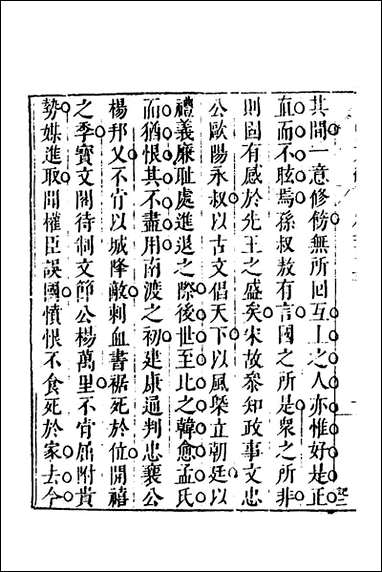 其間一意修傍無所回互上之人亦惟好是正
直而不眩焉孫叔敖有言國之所是衆之所非
則固有感於先王之盛矣宋故叅知政事文忠
公歐陽永叔以古文倡天下以風槩立朝廷以
禮義廉耻處進退之際後世至比之韓愈孟氏
而猶恨其不盡用南渡之初建康通判忠襄公
楊邦乂不肯以城降敵刺血書裾死於位開禧
之季寳文閣待制文節公楊萬里不肯屈附貴
勢媒進取聞權臣誤國憤恨不食死於家去今